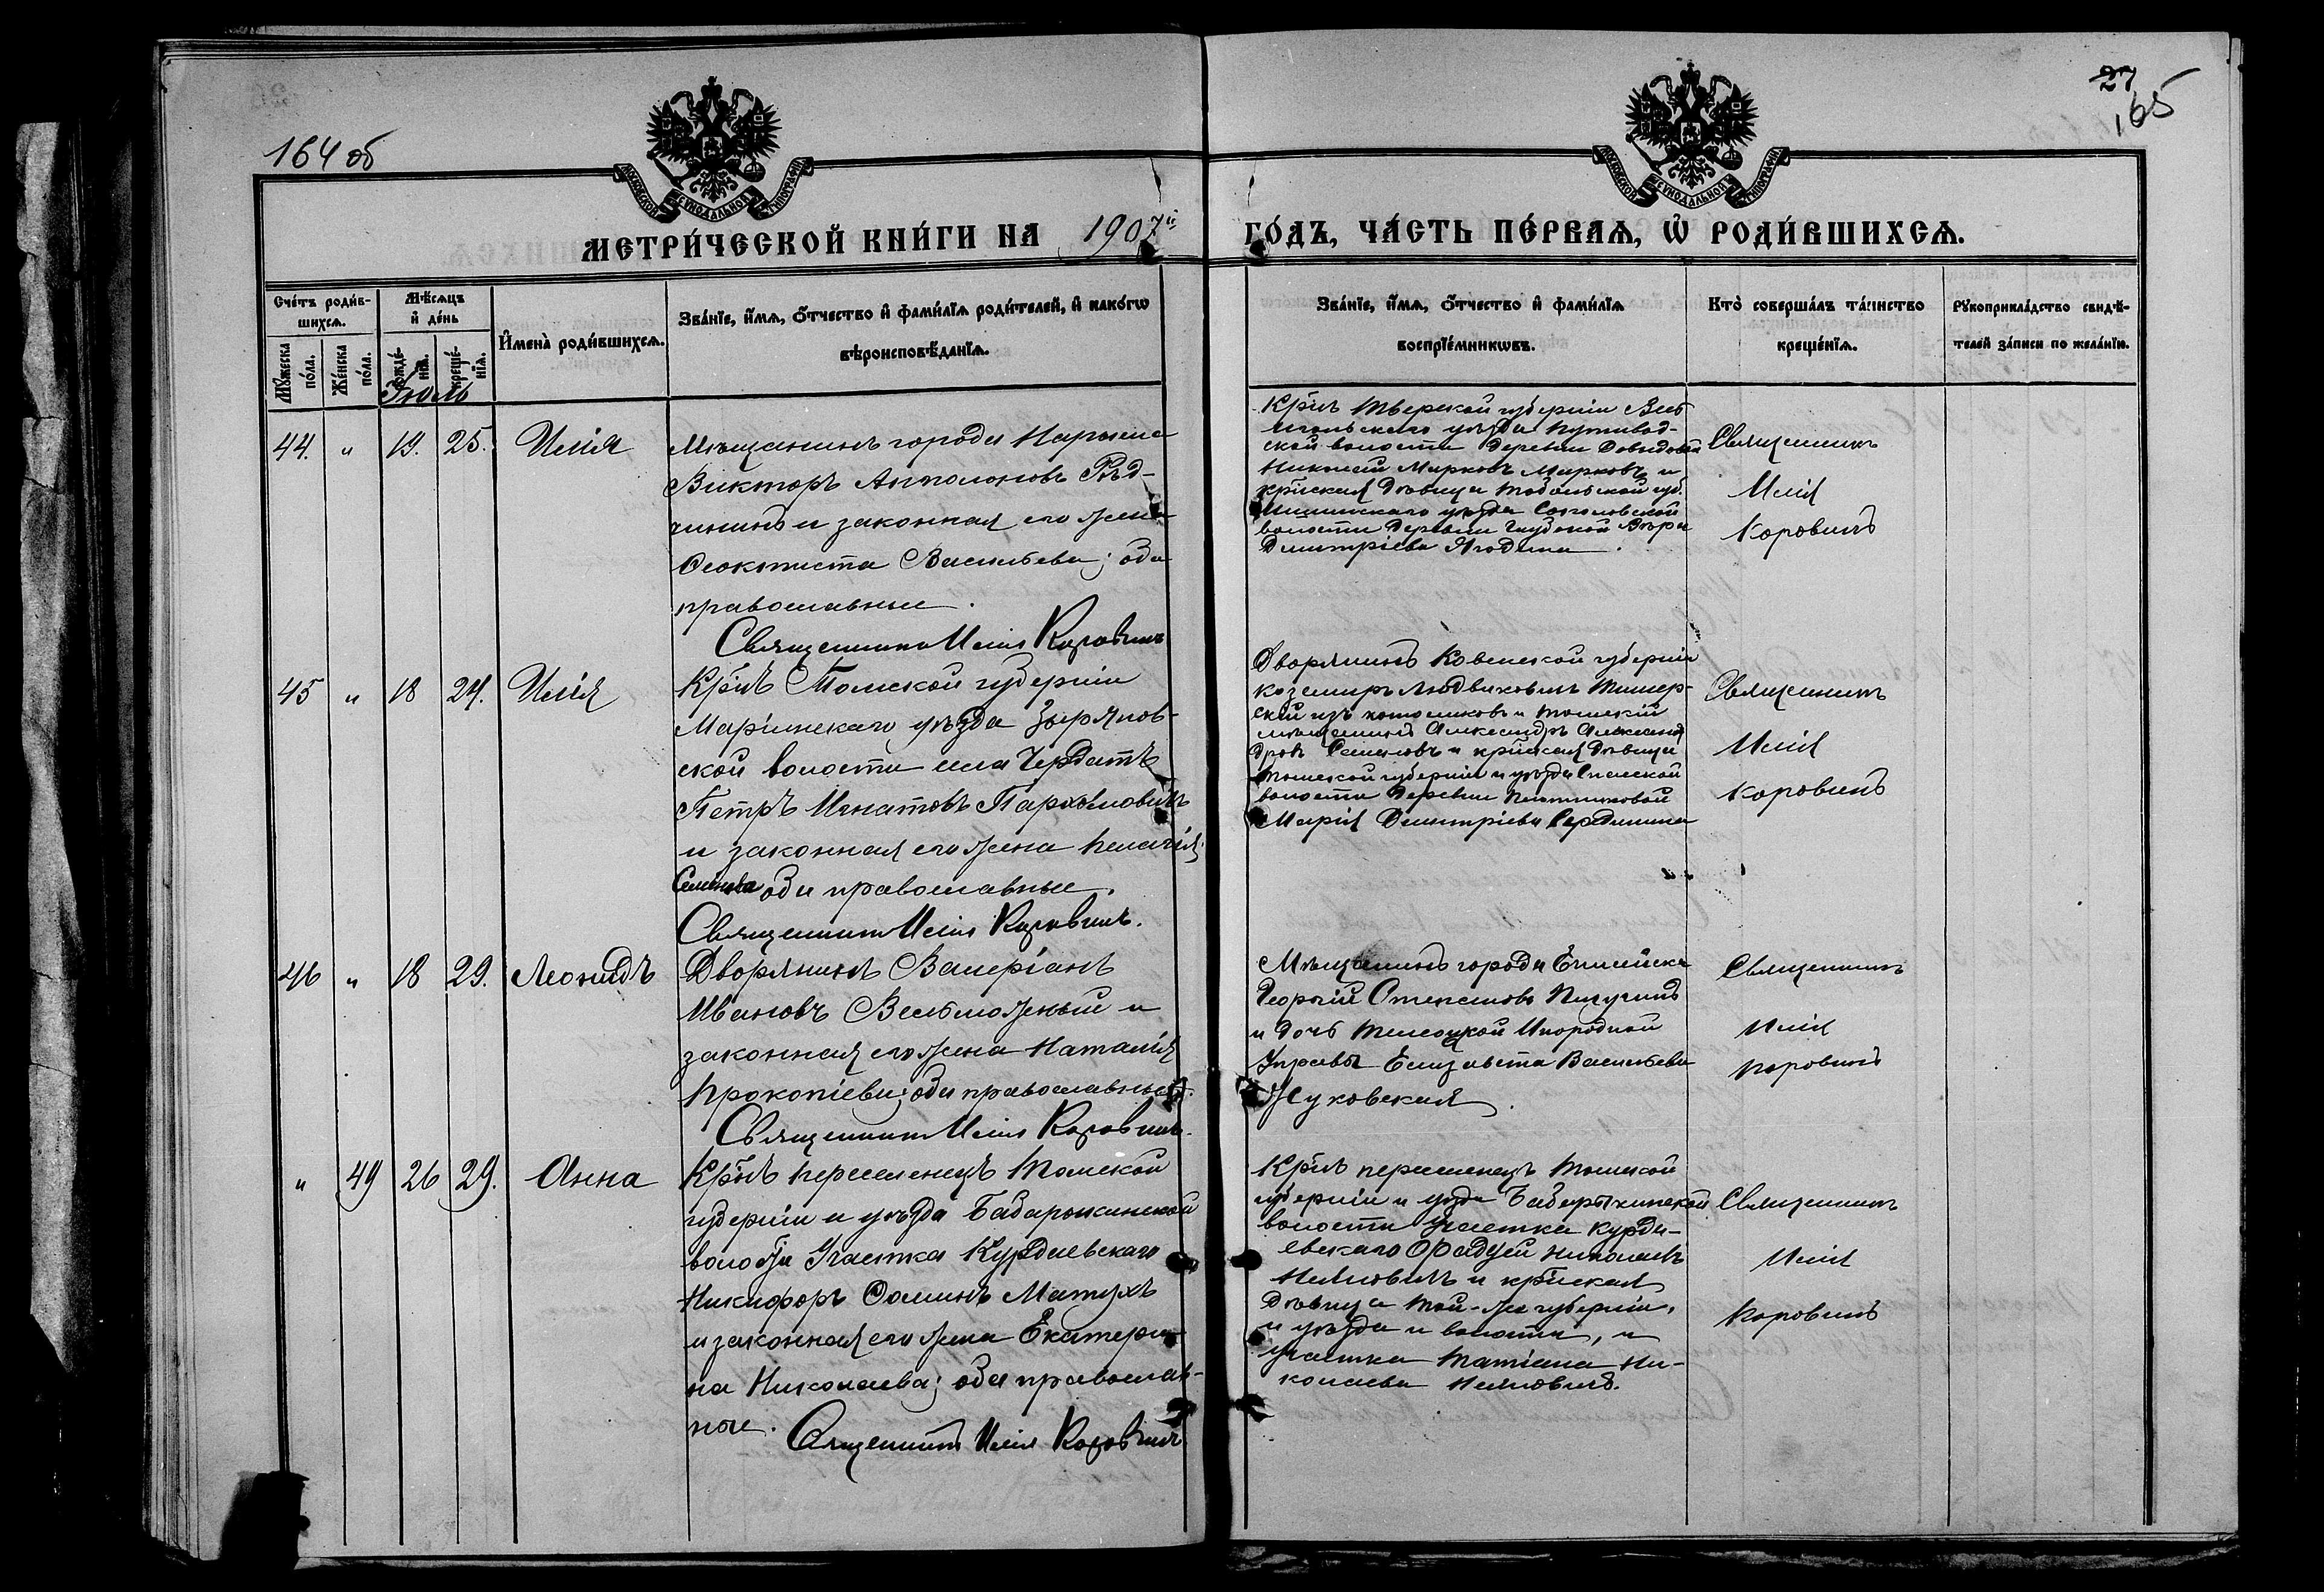 164 об
27
165
МОСКОВСКОЙ СУНОДАЛЬНОЙ ТИПОГРАФІИ
МОСКОВСКОЙ СУНОДАЛЬНОЙ ТИПОГРАФІИ
МЕТРИ́ЧЕСКОЙ КНИ́ГИ НА 1907й ГО́ДЪ, ЧА́СТЬ ПЕ́РВАѦ, Ѡ҆ РОДИ́ВШИХСѦ.
Сче́тъ роди́в-
шихсѧ.
Мꙋ́жеска по́ла.
Же́нска по́ла.
Мѣ́сѧцъ
и҆ де́нь
рожде́-
нїѧ.
креще́-
нїѧ.
И҆мена̀ роди́вшихсѧ.
Зва́нїе, и҆́мѧ, ѻ҆́тчество и҆ фами́лїѧ роди́телей, и҆ како́гѡ
вѣроисповѣ́данїѧ.
Зва́нїе, и҆́мѧ, ѻ҆́тчество и҆ фами́лїѧ
воспрїе́мникѡвъ.
Кто̀ соверша́лъ та́инство
креще́нїѧ.
Рꙋкоприкла́дство свидѣ́-
телей за́писи по жела́нїю.
Іюль
44. " 19. 25. Илія
Мѣщанинъ города Нарыма
Викторъ Антоновъ
и законная его жена
Ѳеоктиста Васильева; оба
православные.
Священникъ Илія Коровинъ
Кр̃нъ Тверской губерніи Весь
егонскаго уѣзда
ской волости деревни
Николай Марковъ Марковъ и
кр̃нская дѣвица Тобольской губ.
Ишимскаго уѣзда Соколовской
волости деревни Глубокой Вѣра
Димитріева Ягодина.
Священникъ
Илія
Коровинъ
45 " 18 24. Илія
Кр̃нъ Томской губерніи
Маріинскаго уѣзда Зырянов-
ской волости села Чердатъ
Петръ Игнатовъ Пархомовичъ
и законная его жена Пелагія
Семенова оба православные.
Священникъ Илія Коровинъ.
Дворянинъ Ковенской губерніи
Каземиръ Людвиковичъ
изъ католиковъ и томскій
мѣщанинъ Александръ Александ
ровъ и кр̃нская дѣвица
Томской губерніи и уѣзда Спасской
волости деревни
Марія Димитріева
Священникъ
Илія
Коровинъ
46 " 18 29. Леонидъ
Дворянинъ Валеріанъ
Ивановъ Вельможный и
законная его жена Наталія
Прокопіева; оба православные.
Священникъ Илія Коровинъ.
Мѣщанинъ города Енисейска
Георгій Степановъ Пичугинъ
и дочь Инородной
Управы Елизавета Васильева
Жуковская.
Священникъ
Илія
Коровинъ
" 49 26 29. Анна
Кр̃нъ переселенецъ Томской
губерніи и уѣзда Бабарыкинской
волости Участка Курдаевскаго
Никифоръ Ѳоминъ Матухъ
и законная его жена Екатери-
на Николаева; оба православ-
ные.
Священникъ Илія Коровинъ
Кр̃нъ переселенецъ Томской
губерніи и уѣзда Бабарыкинской
волости Участка Курда-
евскаго Ѳаддей Николаевъ
и кр̃нская
дѣвица той-же губерніи,
и уѣзда и волости, и
участка Татіана Ни-
колаева
Священникъ
Илія
Коровинъ